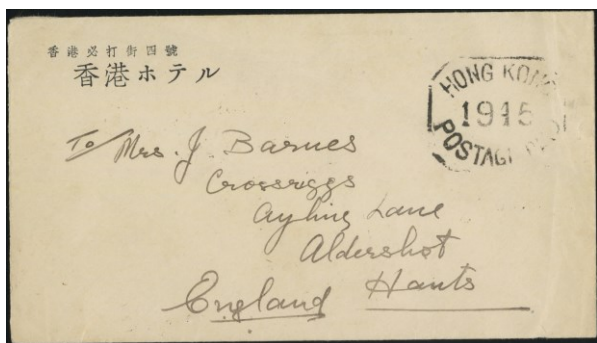 香港必打街四號
香港ホテル
HONG KONG
1945
POSTAGE PAID
To/ Mrs. J. Barnes
Crossriggs
Ayling Lane
Aldershot
Hants
England